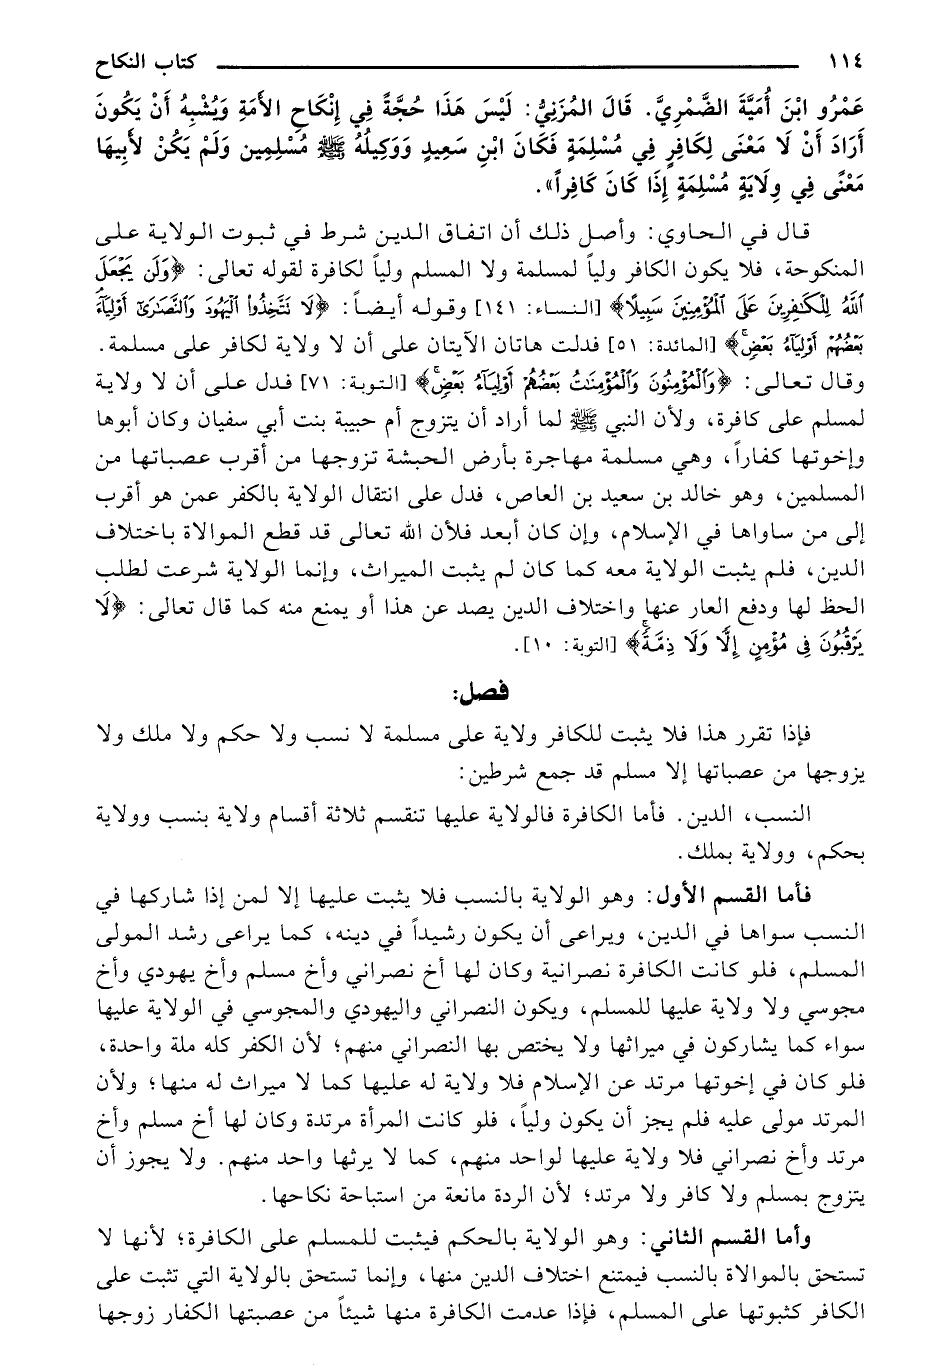 ١١٤ كتاب النكاح
عَمْرُو ابْنَ أُمَيَّةَ الضَّمْرِيَّ. قَالَ المُزَنِيُّ: لَيْسَ هَذَا حُجَّةً فِي إِنْكَاحِ الأَمَةِ وَيُشْبِهُ أَنْ يَكُونَ
أَرَادَ أَنْ لَا مَعْنَى لِكَافِرٍ فِي مُسْلِمَةٍ فَكَانَ ابْنِ سَعِيدٍ وَوَكِيلُهُ ﷺ مُسْلِمِين وَلَمْ يَكُنْ لأَبِيهَا
مَعْنًى فِي وِلَايَةِ مُسْلِمَةٍ إِذَا كَانَ كَافِراً».
قال في الحاوي: وأصل ذلك أن اتفاق الدين شرط في ثبوت الولاية على
المنكوحة، فلا يكون الكافر ولياً لمسلمة ولا المسلم ولياً لكافرة لقوله تعالى: ﴿وَلَن يَجْعَلَ
ٱللَّهُ لِلْكَٰفِرِينَ عَلَى ٱلْمُؤْمِنِينَ سَبِيلًا﴾ [النساء: ١٤١] وقوله أيضاً: ﴿لَا تَتَّخِذُوا۟ ٱلْيَهُودَ وَٱلنَّصَٰرَىٰٓ أَوْلِيَآءَ
بَعْضُهُمْ أَوْلِيَآءُ بَعْضٍ﴾ [المائدة: ٥١] فدلت هاتان الآيتان على أن لا ولاية لكافر على مسلمة.
وقال تعالى: ﴿وَٱلْمُؤْمِنُونَ وَٱلْمُؤْمِنَٰتُ بَعْضُهُمْ أَوْلِيَآءُ بَعْضٍ﴾ [التوبة: ٧١] فدل على أن لا ولاية
لمسلم على كافرة، ولأن النبي ﷺ لما أراد أن يتزوج أم حبيبة بنت أبي سفيان وكان أبوها
وإخوتها كفاراً، وهي مسلمة مهاجرة بأرض الحبشة تزوجها من أقرب عصباتها من
المسلمين، وهو خالد بن سعيد بن العاص، فدل على انتقال الولاية بالكفر عمن هو أقرب
إلى من ساواها في الإسلام، وإن كان أبعد فلأن الله تعالى قد قطع الموالاة باختلاف
الدين، فلم يثبت الولاية معه كما كان لم يثبت الميراث، وإنما الولاية شرعت لطلب
الحظ لها ودفع العار عنها واختلاف الدين يصد عن هذا أو يمنع منه كما قال تعالى: ﴿لَا
يَرْقُبُونَ فِى مُؤْمِنٍ إِلًّا وَلَا ذِمَّةً﴾ [التوبة: ١٠].
فصل:
فإذا تقرر هذا فلا يثبت للكافر ولاية على مسلمة لا نسب ولا حكم ولا ملك ولا
يزوجها من عصباتها إلا مسلم قد جمع شرطين:
النسب، الدين. فأما الكافرة فالولاية عليها تنقسم ثلاثة أقسام ولاية بنسب وولاية
بحكم، وولاية بملك.
فأما القسم الأول: وهو الولاية بالنسب فلا يثبت عليها إلا لمن إذا شاركها في
النسب سواها في الدين، ويراعى أن يكون رشيداً في دينه، كما يراعى رشد المولى
المسلم، فلو كانت الكافرة نصرانية وكان لها أخ نصراني وأخ مسلم وأخ يهودي وأخ
مجوسي ولا ولاية عليها للمسلم، ويكون النصراني واليهودي والمجوسي في الولاية عليها
سواء كما يشاركون في ميراثها ولا يختص بها النصراني منهم؛ لأن الكفر كله ملة واحدة،
فلو كان في إخوتها مرتد عن الإسلام فلا ولاية له عليها كما لا ميراث له منها؛ ولأن
المرتد مولى عليه فلم يجز أن يكون ولياً، فلو كانت المرأة مرتدة وكان لها أخ مسلم وأخ
مرتد وأخ نصراني فلا ولاية عليها لواحد منهم، كما لا يرثها واحد منهم. ولا يجوز أن
يتزوج بمسلم ولا كافر ولا مرتد؛ لأن الردة مانعة من استباحة نكاحها.
وأما القسم الثاني: وهو الولاية بالحكم فيثبت للمسلم على الكافرة؛ لأنها لا
تستحق بالموالاة بالنسب فيمتنع اختلاف الدين منها، وإنما تستحق بالولاية التي تثبت على
الكافر كثبوتها على المسلم، فإذا عدمت الكافرة منها شيئاً من عصبتها الكفار زوجها